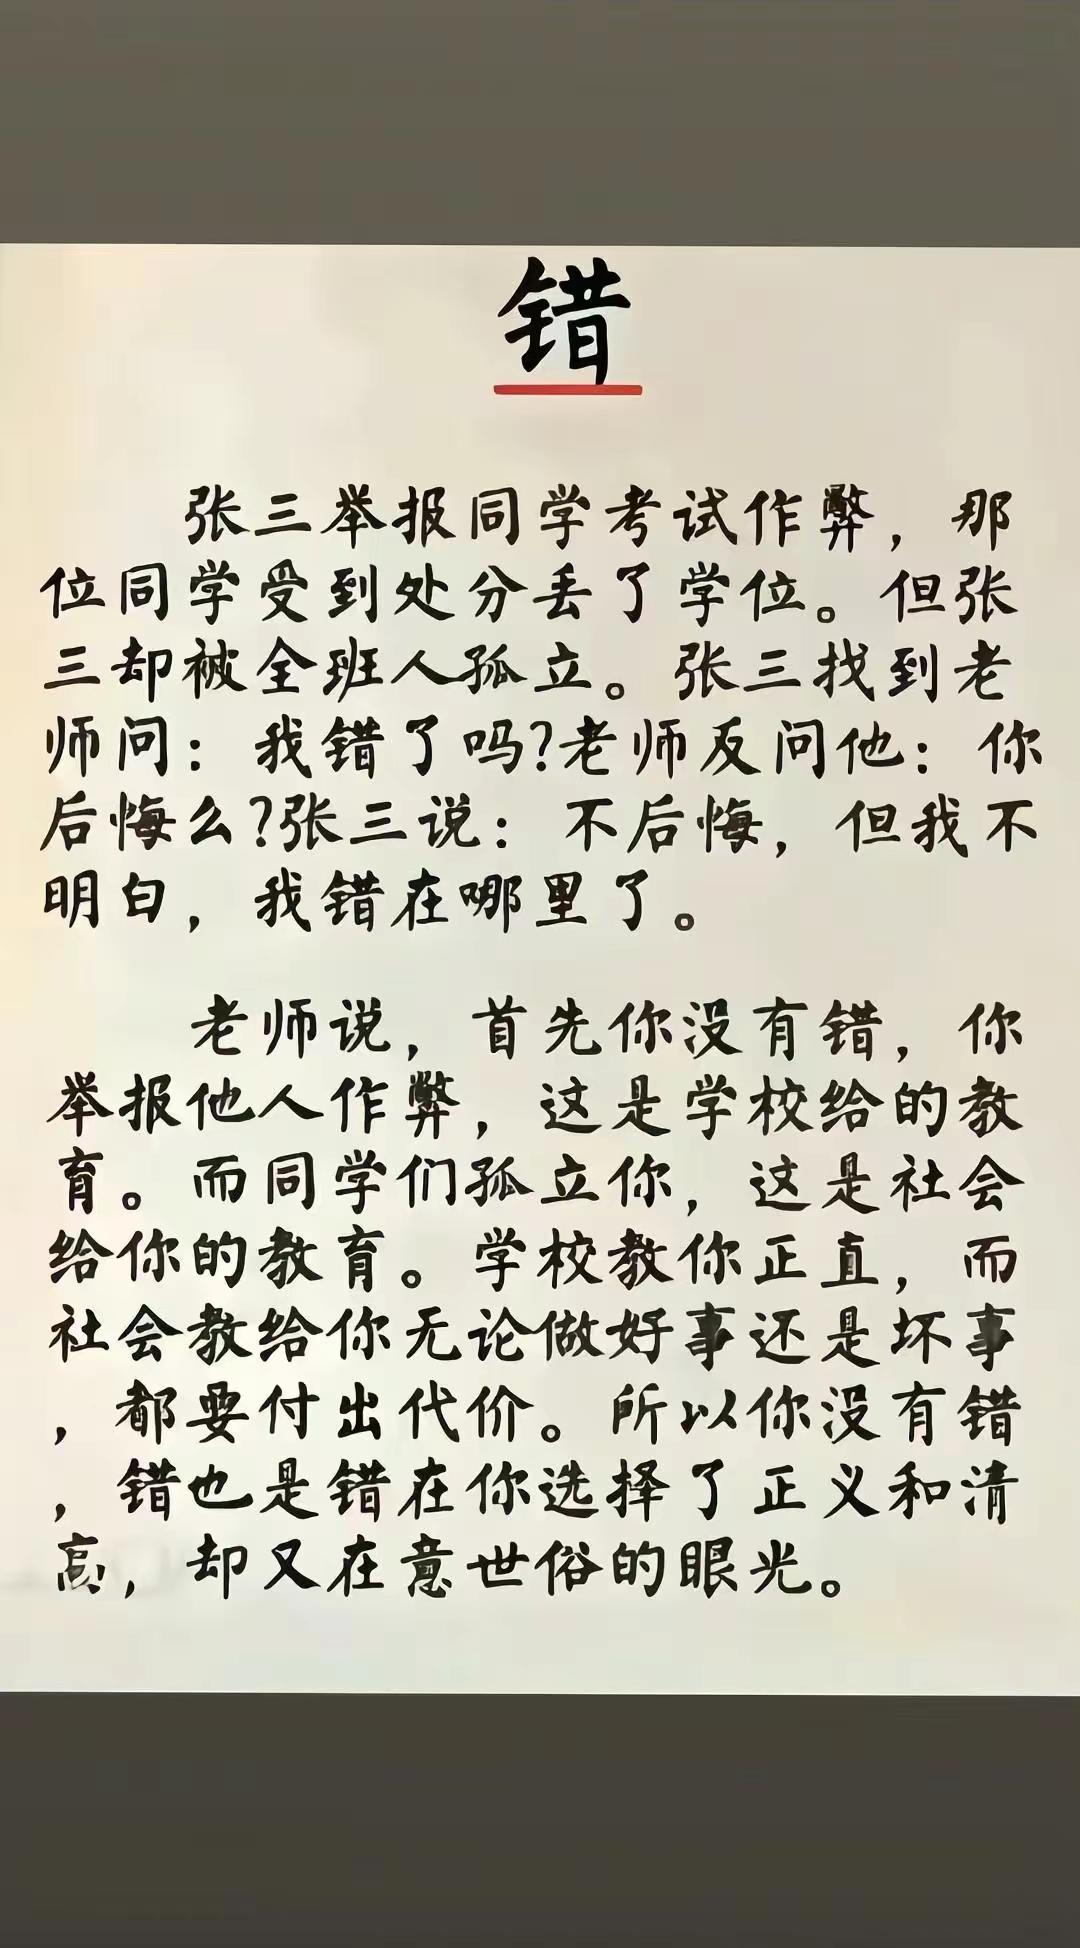 错
张三举报同学考试作弊，那
位同学受到处分丢了学位。但张
三却被全班人孤立。张三找到老
师问：我错了吗?老师反问他：你
后悔么?张三说：不后悔，但我不
明白，我错在哪里了。
老师说，首先你没有错，你
举报他人作弊，这是学校给的教
育。而同学们孤立你，这是社会
给你的教育。学校教你正直，而
社会教给你无论做好事还是坏事
，都要付出代价。所以你没有错
，错也是错在你选择了正义和清
高，却又在意世俗的眼光。